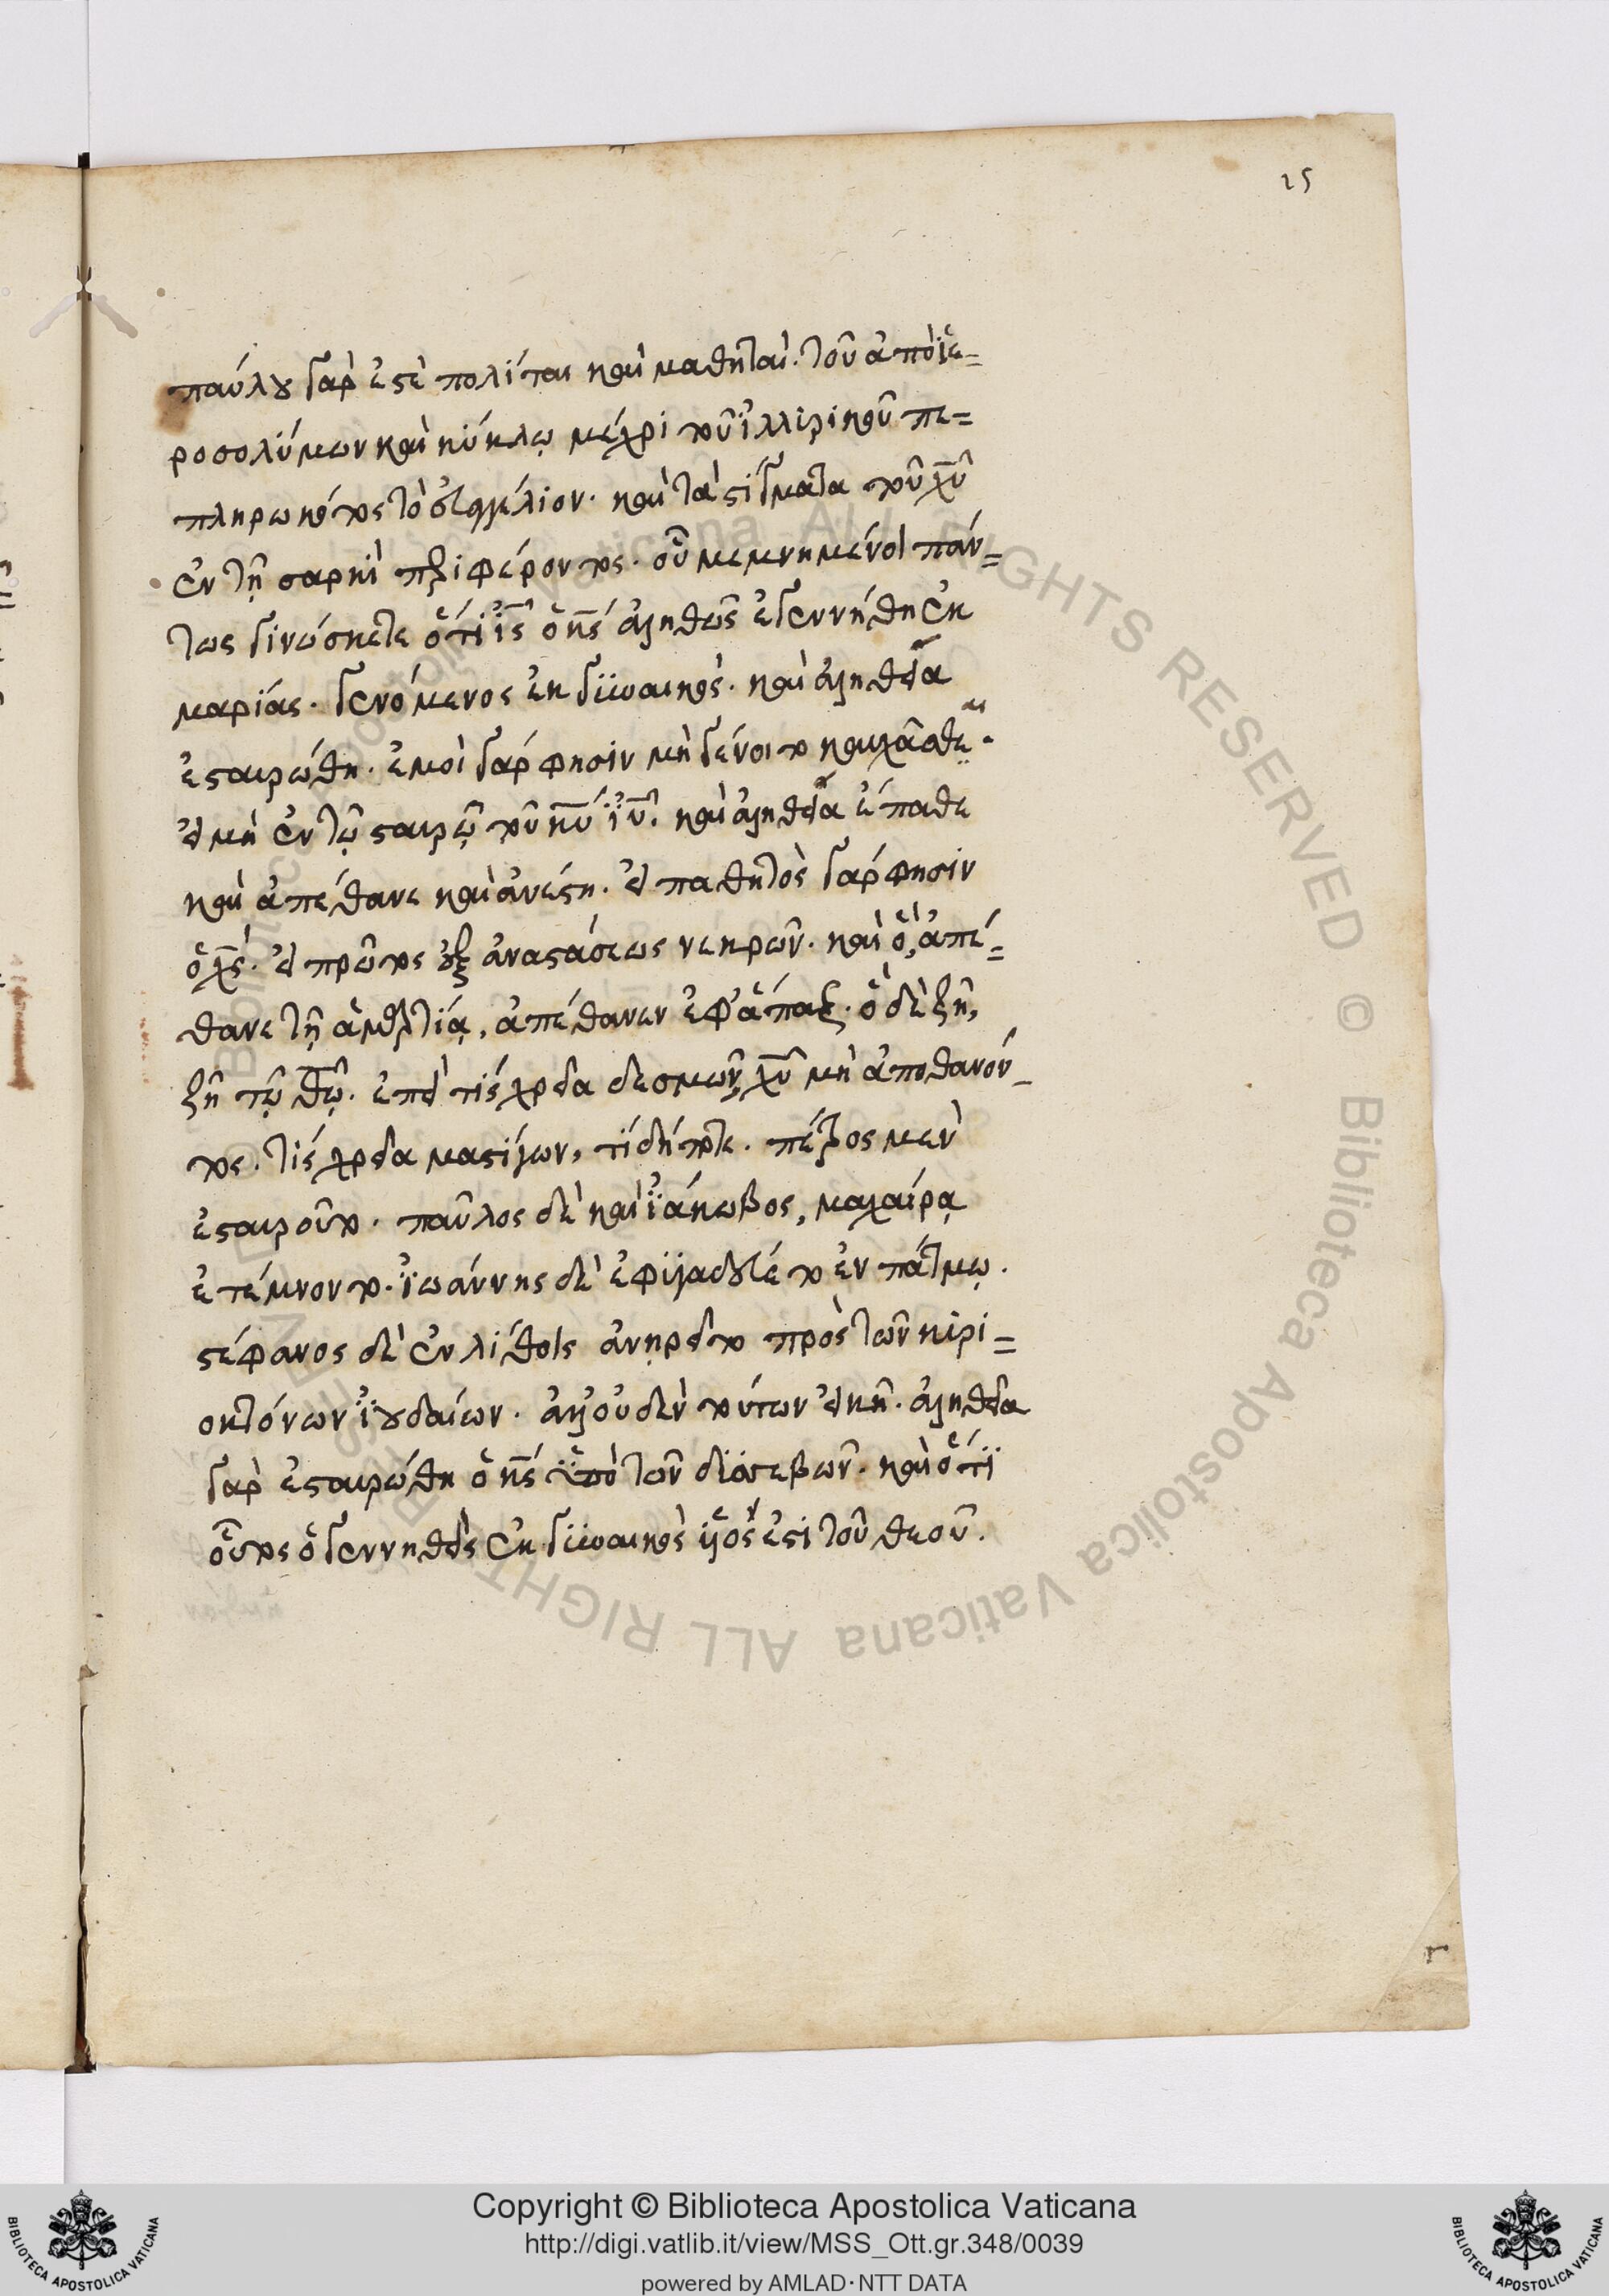 25
παύλου γὰρ ἐστὲ πολίται καὶ μαθηταὶ. τοῦ ἀπὸ ἱε=
ροσολύμων καὶ κύκλῳ μέχρι τοῦ ἰλλιρικοῦ πε=
πληρωκότος τὸ εὐαγγέλιον. καὶ τὰ στίγματα τοῦ χῦ
ἐν τῇ σαρκὶ περιφέροντος. οὗ μεμνημένοι πάν=
τως γινώσκετε ὅτι ἰς ὁ κς ἀληθῶς ἐγεννήθη ἐκ
μαρίας. γενόμενος ἐκ γϊυαικὸς. καὶ ἀληθεία
ἐσταυρώθη. ἐμοὶ γάρ φησιν μὴ γένοιτο καυχᾶσθαι.
εἰ μὴ ἐν τῷ σταυρῷ τοῦ κῦ ἰῦ. καὶ ἀληθεία ἔπαθε
καὶ ἀπέθανε καὶ ἀνέστη. εἰ παθητὸς γάρ φησιν
ὁ χς. εἰ πρῶτος ἐξ ἀναστάσεως νεκρῶν. καὶ ὃ, ἀπέ=
θανε τῇ ἁμαρτίᾳ, ἀπέθανεν ἐφάπαξ. ὃ δὲ ζῇ,
ζῇ τῷ θῷ. ἐπεὶ τίς χρεία δεσμῶν, χῦ μὴ ἀποθανόν_
τος. τίς χρεία μαστίγων, τί δήποτε. πέτρος μὲν
ἐσταυροῦτο. παῦλος δὲ καὶ ἰάκωβος, μαχαίρᾳ
ἐτέμνοντο. ἰωάννης δὲ ἐφυγαδεύετο ἐν πάτμῳ.
στέφανος δὲ ἐν λίθοις ἀνῃρεῖτο πρὸς τῶν κϊρι=
οκτόνων ἰουδαίων. ἀλλ' οὐδὲν τούτων εἰκῆ. ἀληθεία
γὰρ ἐσταυρώθη ὁ κς ὑπὸ τῶν δϊσσεβῶν. καὶ ὅτι
οὗτος ὁ γεννηθεὶς ἐκ γϊυαικὸς ὑιὸς ἐστι τοῦ θεοῦ.
Copyright © Biblioteca Apostolica Vaticana
http://digi.vatlib.it/view/MSS_Ott.gr.348/0039
powered by AMLAD·NTT DATA